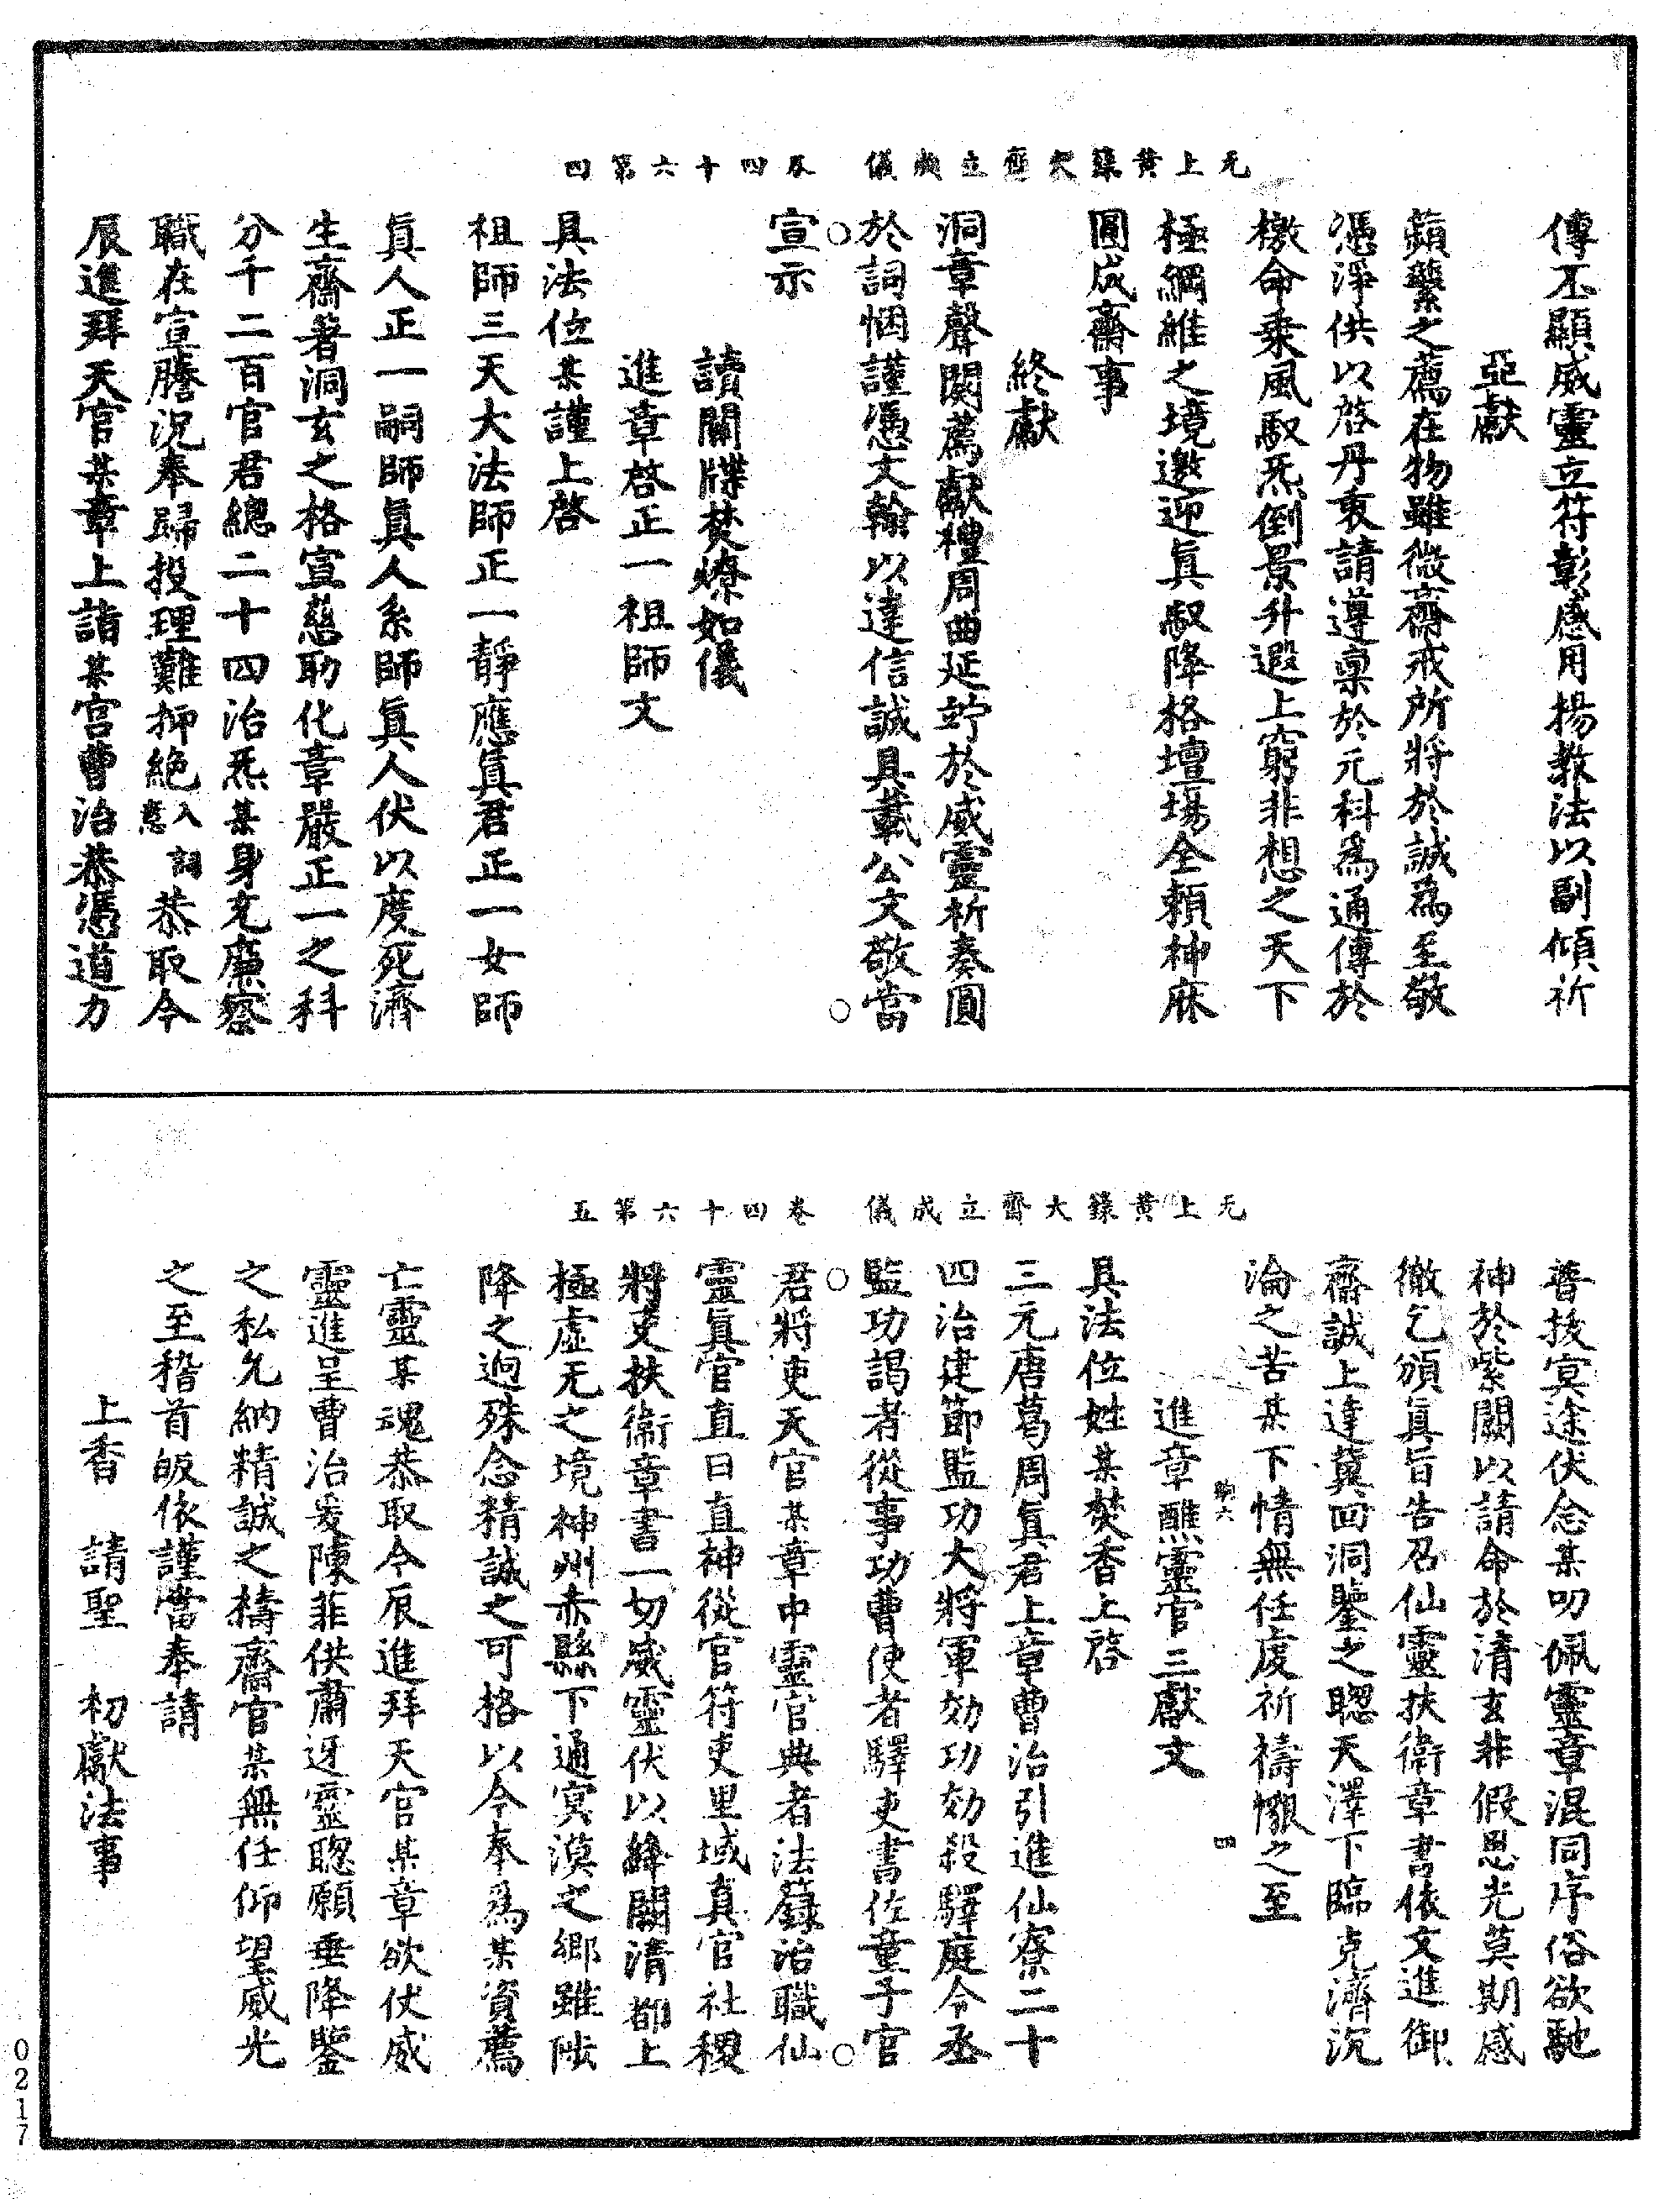 无上黃籙大齋立成儀　卷四十六第四
傳丕顯威靈立符彰感用揚敎法以副傾祈
亞獻
蘋蘩之薦在物雖微齋戒所將於誠為至敬
憑淨供以啓丹衷請遵稟於元科爲通傳於
檄命乗風馭炁倒景升遐上窮非想之天下
極綱維之境邀迎眞馭降格壇場全頼神庥
圓成齋事
終獻
洞章聲闋薦獻禮周曲延竚於威靈祈奏圓
於詞悃謹憑文翰以達信誠具載公文敬當
宣示
讀關牒焚燎如儀
進章啓正一祖師文
具法位某謹上啓
祖師三天大法師正一靜應眞君正一女師
眞人正一嗣師眞人系師眞人伏以度死濟
生齋著洞玄之格宣慈助化章嚴正一之科
分千二百官君總二十四治炁某身充廉察
職在宣謄況奉歸投理難抑絶入詞意恭取今
辰進拜天官某章上詣某宮曹治恭憑道力
无上黃籙大齋立成儀　卷四十六第五
普拔冥途伏念某叨佩靈章混同序俗欲馳
神於紫闕以請命於清玄非假恩光莫期感
徹乞頒眞旨告召仙靈扶衛章書依文進御
齋誠上達冀回洞鑒之聰天澤下臨克濟沉
淪之苦某下情無任虔祈禱懇之至
進章醮靈官三獻文
具法位姓某焚香上啓
三元唐葛周眞君上章曹治引進仙寮二十
四治建節監功大將軍効功効殺驛庭令丞
監功謁者從事功曹使者驛吏書佐童子官
君將吏天官某章中靈官典者法籙治職仙
靈眞官直日直神從官符吏里域真官社稷
將吏扶衛章書一切威靈伏以絳闕清都上
極虛无之境神州赤縣下通冥漠之鄉雖陟
降之逈殊念精誠之可格以今奉爲某資薦
亡靈某魂恭取今辰進拜天官某章欲仗威
靈進呈曹治爰陳菲供肅迓靈聰願垂降鑒
之私允納精誠之禱齋官某無任仰望威光
之至稽首皈依謹當奉請
上香　請聖　初獻法事
0217